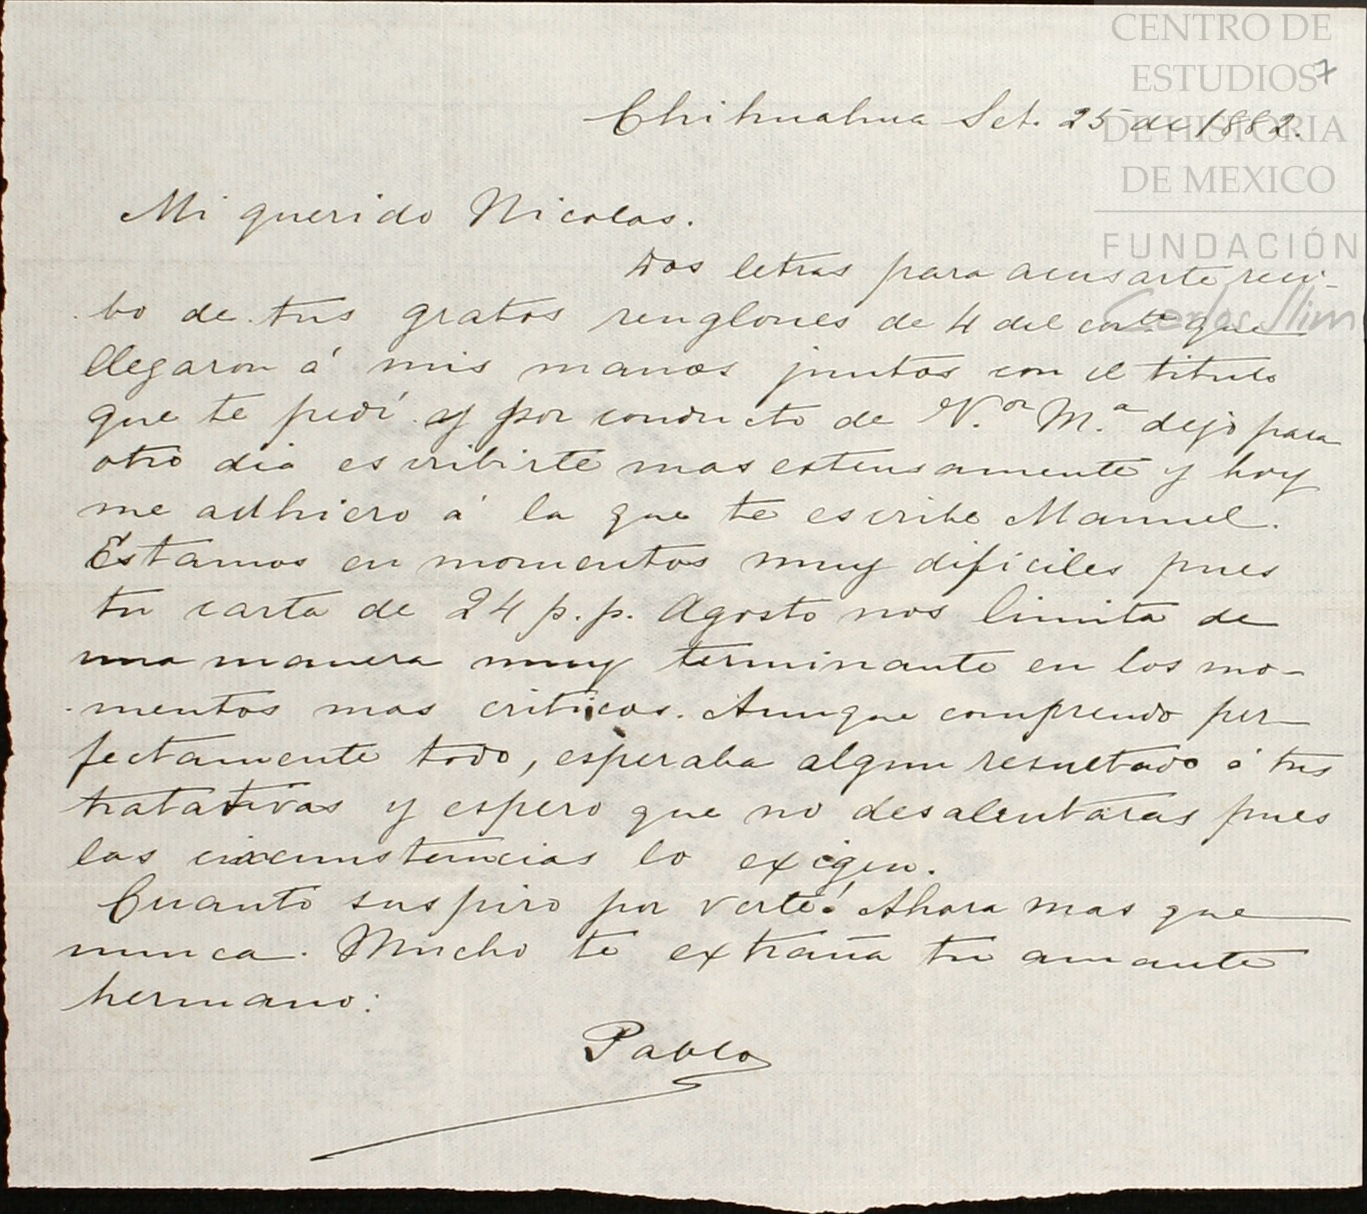 CENTRO DE
ESTUDIOS 7
DE HISTORIA
DE MEXICO
FUNDACIÓN
Carlos Slim
Chihuahua Set. 25 de 1882.
Mi querido Nicolas.
Dos letras para acusarte reci-
bo de tus gratos renglones de 4 del corte que
llegaron á mis manos juntos con el titulo
que te pedí y por conducto de N.on M.a dejo para
otro dia escribirte mas extensamente y hoy
me adhiero á la que te escribe Manuel.
Estamos en momentos muy dificiles pues
tu carta de 24 p.p. Agosto nos limita de
una manera muy terminante en los mo-
mentos mas criticos. Aunque comprendo per-
fectamente todo, esperaba algun resultado á tus
tratativas y espero que no desalentaras pues
las circumstancias lo exigen.
Cuanto suspiro por verte! Ahora mas que
nunca. Mucho te extraña tu amante
hermano:
Pablo